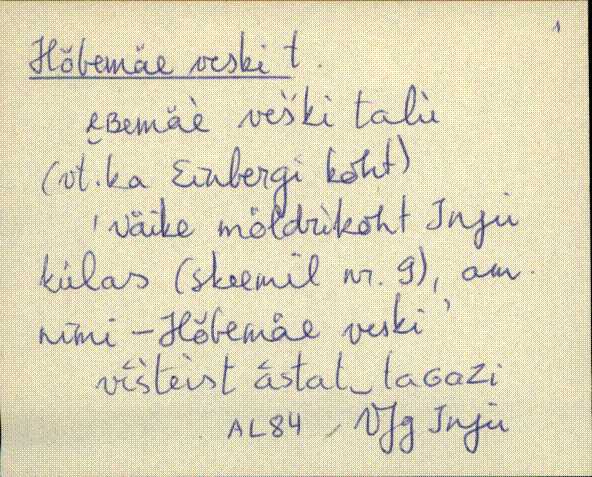 1
Hõbemäe veski t.
eʙemäè veški talù
(vt. ka Einbergi koht)
'väike möldrikoht Inju
külas (skeemil nr. 9), am.
nimi – Hõbemäe veski'
vīšteist āstat‿taɢazi
AL84 VJg Inju